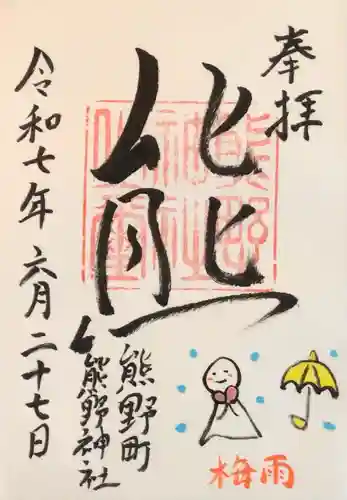 奉拝
熊
熊野町
熊野神社
令和七年六月二十七日
梅雨